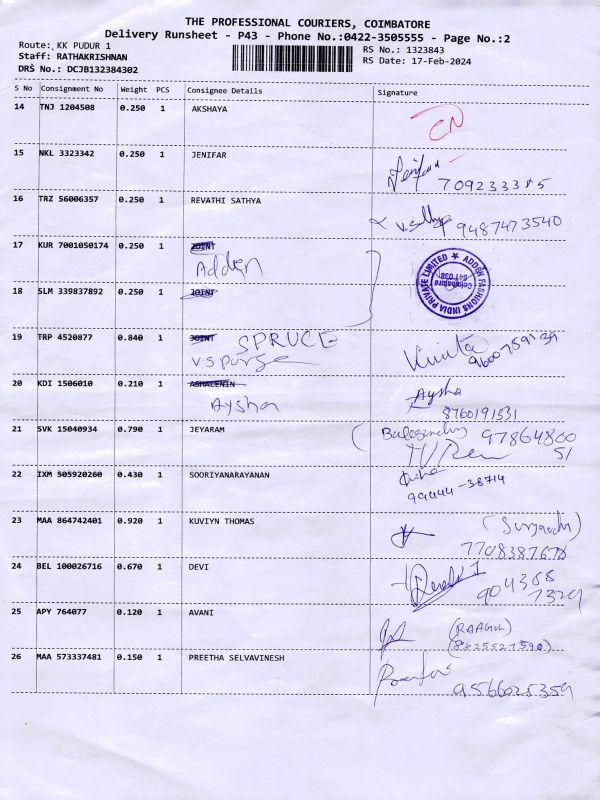 THE PROFESSIONAL COURIERS, COIMBATORE
Delivery Runsheet - P43 - Phone No.:0422-3505555 - Page No.:2
Route: KK PUDUR 1 RS No.: 1323843
Staff: RATHAKRISHNAN RS Date: 17-Feb-2024
DRS No.: DCJB132384302
S No Consignment No Weight PCS Consignee Details Signature
14 TNJ 1204508 0.250 1 AKSHAYA
15 NKL 3323342 0.250 1 JENIFAR
16 TRZ 56006357 0.250 1 REVATHI SATHYA 9487473540
17 KUR 7001050174 0.250 1 JOINT
Adden
ADDEN FASHIONS INDIA PRIVATE LIMITED
Coimbatore
641 038
18 SLM 339837892 0.250 1 JOINT
19 TRP 4520877 0.840 1 JOINT SPRUCE
20 KDI 1506010 0.210 1 ASHALENIN Aysha
Aysha 8760191331
21 SVK 15040934 0.790 1 JEYARAM 97864800
51
22 IXM 505920260 0.430 1 SOORIYANARAYANAN
99444-38714
23 MAA 864742401 0.920 1 KUVIYN THOMAS
7708387678
24 BEL 100026716 0.670 1 DEVI
904368
7329
25 APY 764077 0.120 1 AVANI
(8825527590)
26 MAA 573337481 0.150 1 PREETHA SELVAVINESH
9566025359